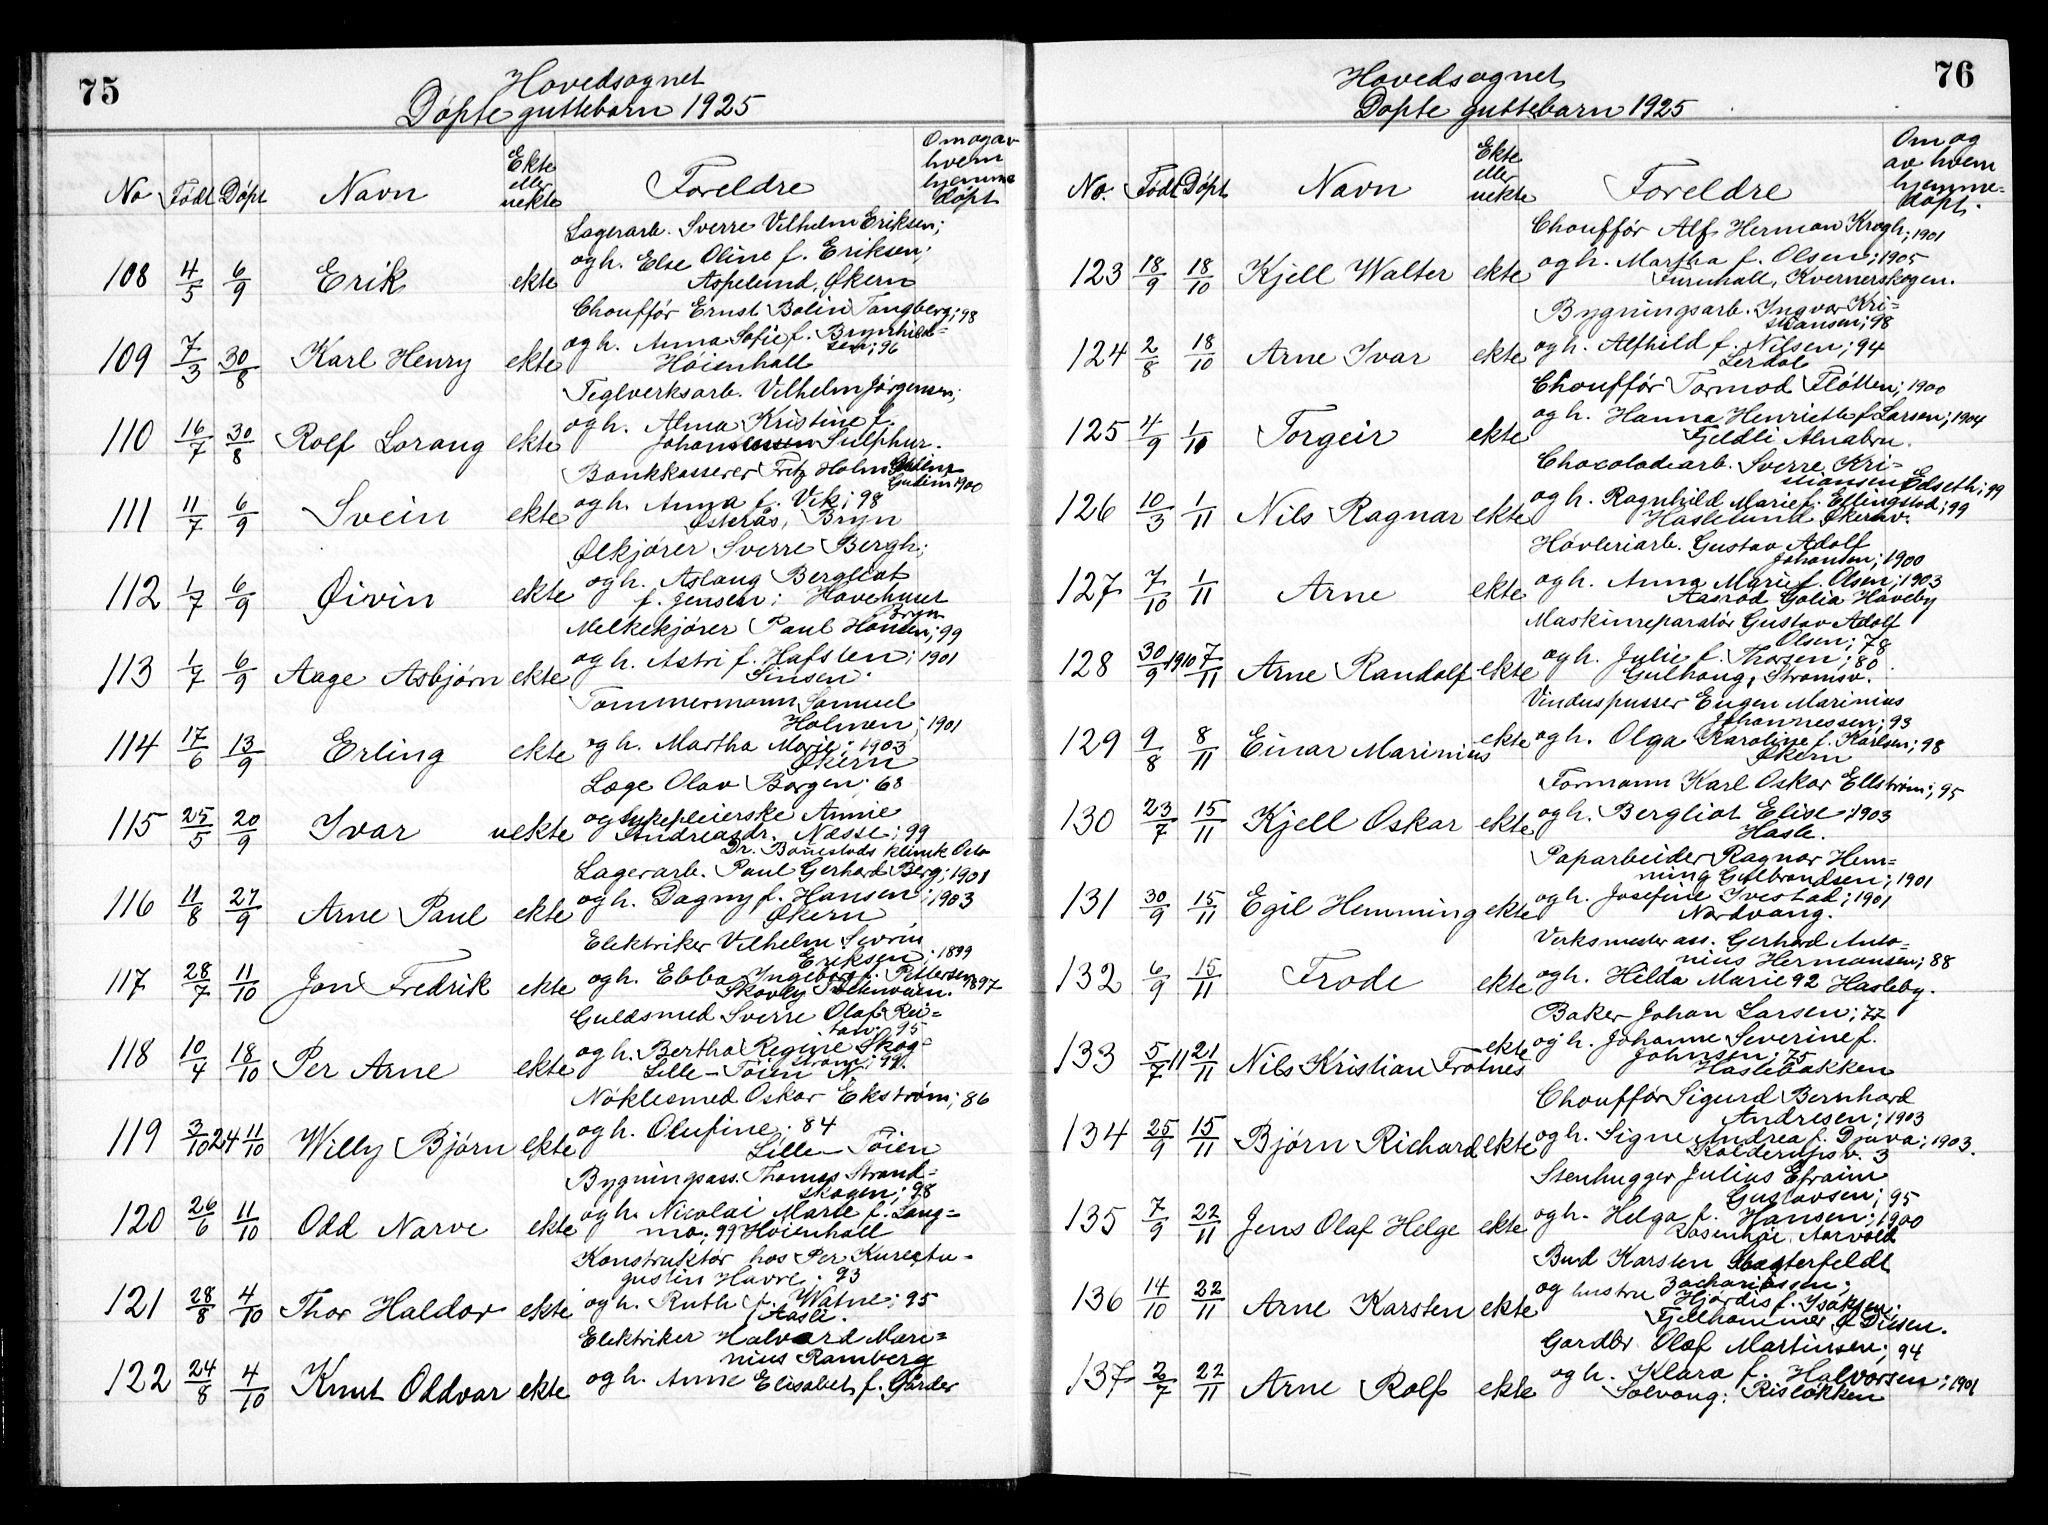 75
Hovedsognet
Døpte guttebarn 1925
No Født Døpt Navn Ekte eller uekte Foreldre Om og av hvem hjemme døpt
Lagerarb. Sverre Vilhelm Eriksen;
108 4/5 6/9 Erik ekte og h. Else Oline f. Eriksen;
Aspelund, Økern
Chouffør Ernst Bolin Tangberg; 98
109 7/3 30/8 Karl Henry ekte og h. Anna Sofie f. Brynhild=
sen; 96
Høienhall
Teglverksarb. Vilhelm Jørgensen;
110 16/7 30/8 Rolf Lorang ekte og h. Alma Kristine f.
Johannessen Sulphur.
Bankkasserer Fritz Holm
Gudim 1900
111 11/7 6/9 Svein ekte og h. Anna f. Vik; 98
Østerås, Bryn
Ølkjører Sverre Bergh;
112 1/7 6/9 Øivin ekte og h. Aslaug Bergliot
f. Jensen; Havehuset
Bryn
Melkekjører Paul Hansen; 99
113 1/7 6/9 Aage Asbjørn ekte og h. Astri f. Hafsten; 1901
Sinsen.
Tømmermann Samuel
Holmen; 1901
114 17/6 13/9 Erling ekte og h. Martha Marie; 1903
Økern
Læge Olav Borgen; 68
115 25/5 20/9 Ivar uekte og sykepleierske Annie
Andreasdr. Næsse; 99
Dr. Bonestads klinik Oslo
Lagerarb. Paul Gerhard Berg; 1901
116 11/8 27/9 Arne Paul ekte og h. Dagny f. Hansen; 1903
Økern
Elektriker Vilhelm Sevrin
Eriksen; 1899
117 28/7 11/10 Jan Fredrik ekte og h. Ebba Ingeborg f. Pettersen 1897
Skovly Tvetenveien.
Guldsmed Sverre Olaf Rei=
tan; 95
118 10/4 18/10 Per Arne ekte og h. Bertha Regine Skog=
strøm; 99.
Lille-Tøien N.
Nøklesmed Oskar Ekstrøm; 86
119 3/10 24 11/10 Willy Bjørn ekte og h. Olufine; 84
Lille-Tøien
Bygningsass. Thomas Strand=
skogen; 98
120 26/6 11/10 Odd Narve ekte og h. Nicolai Marie f. Lang=
mo; 99 Høienhall
Konstruktør hos Per Kure
gustin Havre; 93
121 28/8 4/10 Thor Haldor ekte og h. Ruth f. Watne; 95
Hasle.
Elektriker Halvard Mari=
nius Ramberg
122 24/8 4/10 Knut Oddvar ekte og h. Anne Elisabet f. Garder
76
Hovedsognet
Døpte guttebarn 1925
No. Født Døpt Navn Ekte eller uekte Foreldre Om og av hvem hjemme=døpt.
Chouffør Alf Herman Krogh; 1901
123 18/9 18/10 Kjell Walter ekte og h. Martha f. Olsen; 1905
Furuhall, Kvernerskogen.
Bygningsarb. Ingvar Kri=
stiansen; 98
124 2/8 18/10 Arne Ivar ekte og h. Alfhild f. Nilsen; 94
Lerdal
Chouffør Tormod Fløtten; 1900
125 4/9 1/10 Torgeir ekte og h. Hanna Henriette f. Larsen; 1904
Fjeldli Alnabru.
Chocoladearb. Sverre Kri=
stiansen Edseth; 99
126 10/3 1/11 Nils Ragnar ekte og h. Ragnhild Marie f. Ellingstad; 99
Haslelund Økernv.
Høvleriarb. Gustav Adolf
Johansen; 1900
127 7/10 1/11 Arne ekte og h. Anna Marie f. Olsen; 1903
Aasrød Golia Haveby
Maskinreparatør Gustav Adolf
Olsen; 78
128 30/9 1910 7/11 Arne Randolf ekte og h. Julie f. Thorsen; 80
Gulhaug, Strømsv.
Vinduspusser Eugen Marinius
Johannessen; 93
129 9/8 8/11 Einar Marinius ekte og h. Olga Karoline f. Karlsen; 98
Økern
Formann Karl Oskar Ellstrøm; 95
130 23/7 15/11 Kjell Oskar ekte og h. Bergliot Elise; 1903
Hasle.
Paparbeider Ragnar Hem=
ming Gulbrandsen; 1901
131 30/9 15/11 Egil Hemming ekte og h. Josefine Ivestad; 1901
Nordvang.
Verksmester ass. Gerhard Anto=
nius Hermansen; 88
132 6/9 15/11 Frode ekte og h. Hilda Marie 92 Hasleby.
Baker Johan Larsen; 77
133 5/7 11 21/11 Nils Kristian Frøtnes ekte og h. Johanne Severine f.
Johnsen; 75
Haslebakken
Chouffør Sigurd Bernhard
Andresen; 1903
134 25/9 15/11 Bjørn Richard ekte og h. Signe Andrea f. Drava; 1903.
Kolderupsv. 3
Stenhugger Julius Efraim
Gustavsen; 95
135 7/9 22/11 Jens Olaf Helge ekte og h. Helga f. Hansen; 1900
Rosenhøi, Aarvold
Bud Karsten
Zachariassen;
136 14/10 22/11 Arne Karsten ekte og hustru Hjørdis f. Isaksen;
Fjellhammer
Gardbr. Olaf Martinsen; 94
137 2/7 22/11 Arne Rolf ekte og h. Klara f. Halvorsen; 1901
Solvang; Risløkken